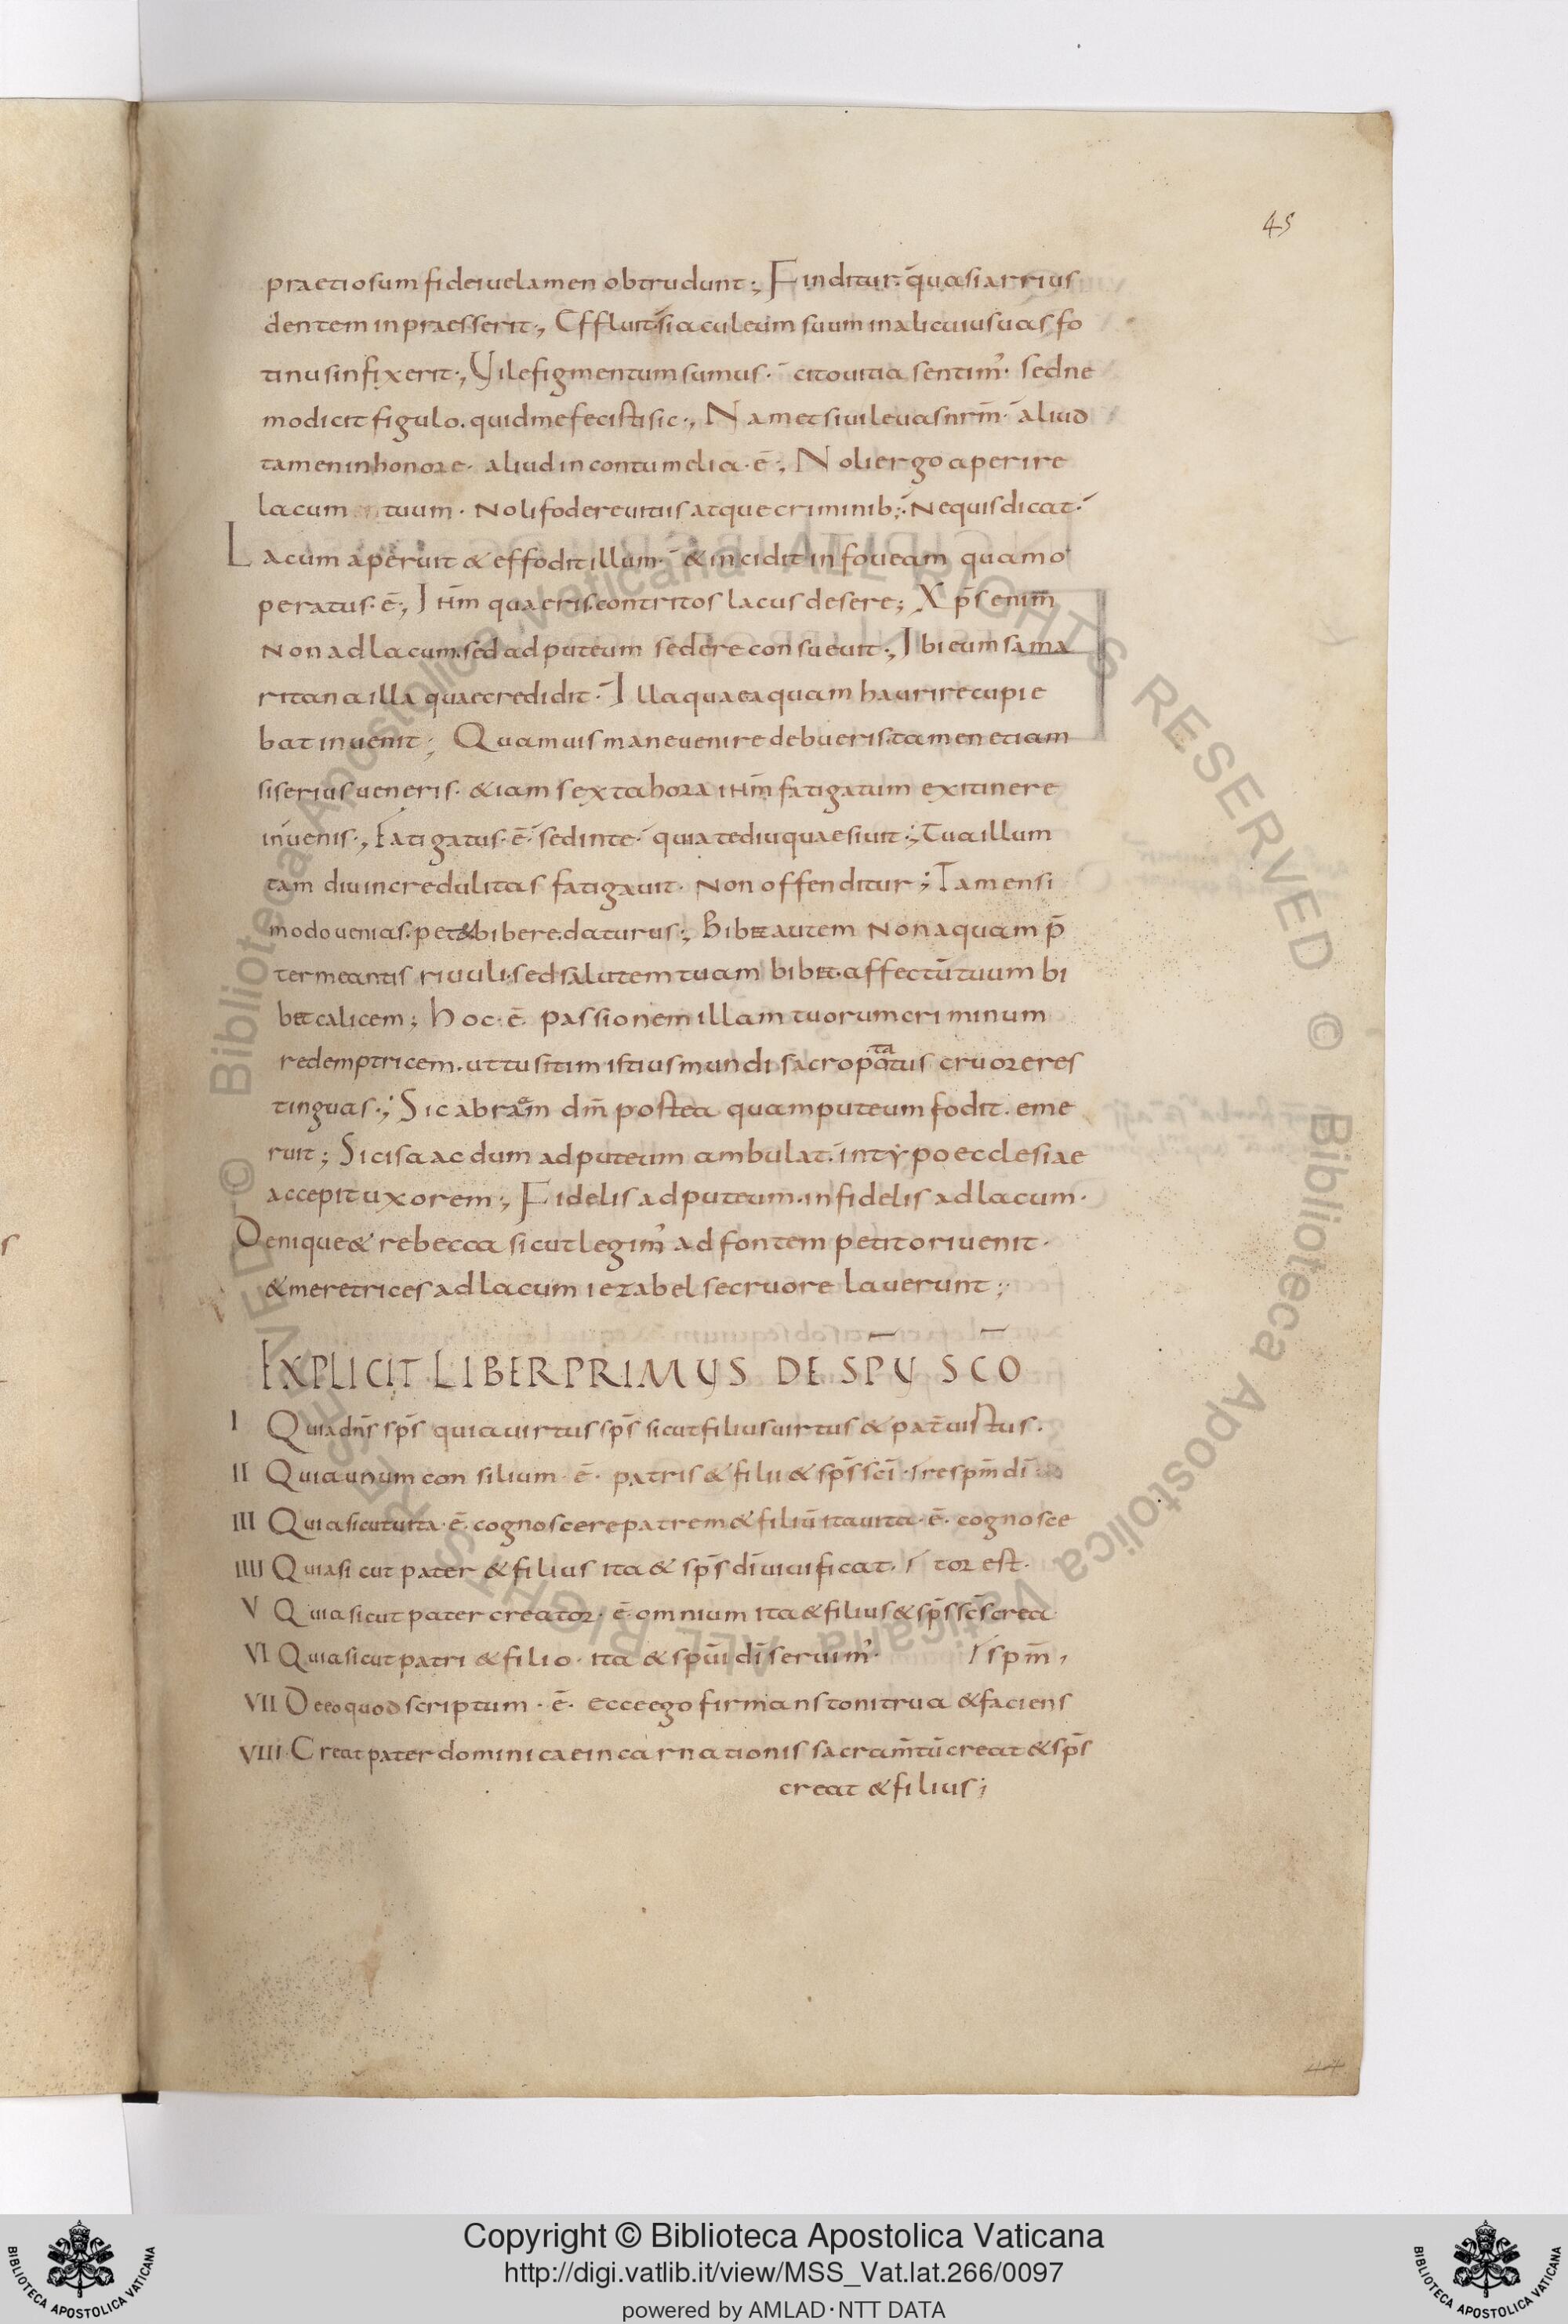 45
praetiosum fidei uelamen obtrudunt; Finditur. quasi arrius
dentem inpraesserit; Effluit. si aculeum suum in alicuius uas fo
tinus infixerit; Vile figmentum sumus. cito uitia sentim'. sed ne
mo dicit figulo. quid me fecisti sic; Nam etsi uile uas nr̄m. aliud
tamen in honore. aliud in contumelia. ē; Noli ergo aperire
lacum tuum. Noli fodere uitiis atque criminib; Ne quis dicat.
Lacum aperuit & effodit illum. & incidit in foueam quam o
peratus. ē; Ihm̄ quaeris. contritos lacus desere; Xp̄s enim
Non ad lacum. sed ad puteum sedere consueuit; Ibi eum sama
ritana illa quae credidit. Illa quae aquam haurire cupie
bat inuenit; Quamuis mane uenire debueris. tamen etiam
si serius ueneris. & iam sexta hora ihm̄ fatigatum ex itinere
inuenis; Fatigatus. ē. sed in te. quia te diu quaesiuit; Tua illum
tam diu incredulitas fatigauit. Non offenditur; Tamen si
modo uenias. pet& bibere. daturus; Bibet autem Non aquam p̄
termeantis riuuli. sed salutem tuam bibet. affectū tuum bi
bet calicem; hoc. ē. passionem illam tuorum criminum
redemptricem. ut tu sitim istius mundi sacro potatus cruore res
tinguas; Sic abraam dm̄ postea quam puteum fodit. eme
ruit; Sic isaac dum ad puteum ambulat. in typo ecclesiae
accepit uxorem; Fidelis ad puteum. infidelis ad lacum.
Denique & rebecca sicut legim' ad fontem petitori uenit.
& meretrices ad lacum iezabel se cruore lauerunt;
EXPLICIT LIBER PRIMUS DE SPŪ SCŌ
I Quia dn̄s sp̄s quia uirtus sp̄s sicut filius uirtus & pat̄
II Quia unum consilium. ē. patris & filii & sp̄s sci. res pm̄ di
III Quia sicut uita. ē. cognoscere patrem & filiū ita uita. ē. cognosce
IIII Quia sicut pater & filius ita & sp̄s dī uiuificat. tor est.
V Quia sicut pater creator. ē. omnium ita & filius & sp̄s sc̄s crea
VI Quia sicut patri & filio. ita & spūi dī seruim'. spm̄,
VII De eo quod scriptum. ē. Ecce ego firmans tonitrua & faciens
VIII Creat pater dominicae incarnationis sacram̄tū creat & sp̄s
creat & filius;
Copyright © Biblioteca Apostolica Vaticana
http://digi.vatlib.it/view/MSS_Vat.lat.266/0097
powered by AMLAD·NTT DATA
BIBLIOTECA APOSTOLICA VATICANA
BIBLIOTECA APOSTOLICA VATICANA
© Biblioteca Apostolica Vaticana ALL RIGHTS RESERVED
© Biblioteca Apostolica Vaticana ALL RIGHTS RESERVED